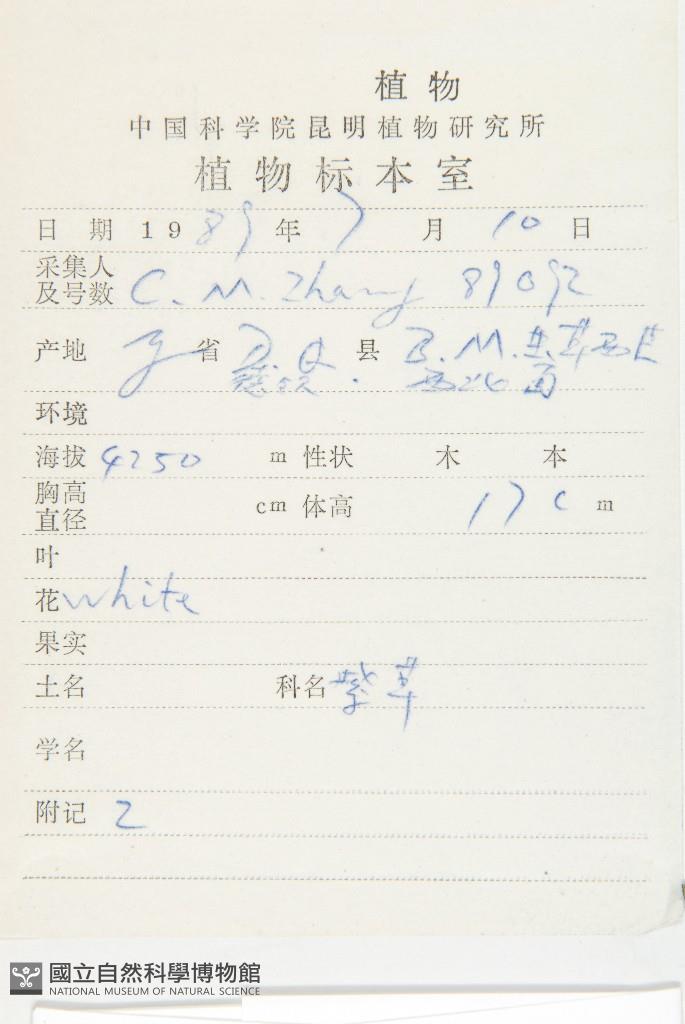 植物
中国科学院昆明植物研究所
植物标本室
日 期 19 89 年 7 月 10 日
采集人及号数 C. M. Zhang 89092
产地 省 D. Q 县 B. M.
西北面
环境
海拔 4250 m 性状 木 本
胸高直径 cm 体高 17 c m
叶
花 white
果实
土名 科名 紫草
学名
附记 2
國立自然科學博物館
NATIONAL MUSEUM OF NATURAL SCIENCE